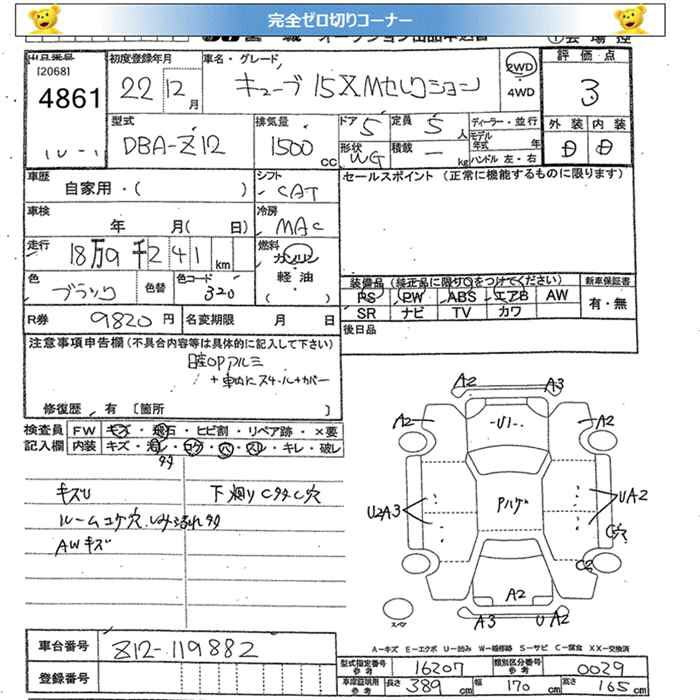 完全ゼロ切りコーナー
出品番号
(2068)
4861
初度登録年月
22 12月
車名・グレード
キューブ 15XMセレクション
2WD
4WD
評価点
3
型式
DBA-Z12
排気量
1500cc
ドア 5
定員 5人
形状 WG
積載 ー kg
ディーラー・並行
モデル年式 年
ハンドル 左・右
外装 D
内装 D
車歴
自家用・( )
シフト
CAT
セールスポイント (正常に機能するものに限ります)
車検
年 月( 日)
冷房
MAC
走行
18万9千241km
燃料
ガソリン
軽油
( )
色
ブラック
色替
色コード
320
装備品 (純正品に限り○をつけてください)
PS PW ABS エアB AW
SR ナビ TV カワ
新車保証書
有・無
R券 9820円
名変期限 月 日
後日品
注意事項申告欄 (不具合内容等は具体的に記入して下さい)
日産OPアルミ
+車内にスチール+カバー
修復歴 有 [箇所 ]
検査員記入欄
FW キズ・飛石・ヒビ割・リペア跡・×要
内装 キズ・汚レ・コゲ・穴・スレ・キレ・破レ
タタ
キズU
下廻りCタタC穴
ルームコゲ穴
AWキズ
A2 A3
A2 A2
U1
Pルーフ
U2A3
UA2
C穴
C2
A2
A3 UA2
スペア
A-キズ E-エクボ U-凹み W-補修跡 S-サビ C-腐食 XX-交換済
車台番号
Z12-119882
登録番号
型式指定番号 参考 16207
類別区分番号 参考 0029
車庫証明用 参考 長さ 389cm 幅 170cm 高さ 165cm